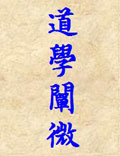 道學闡微